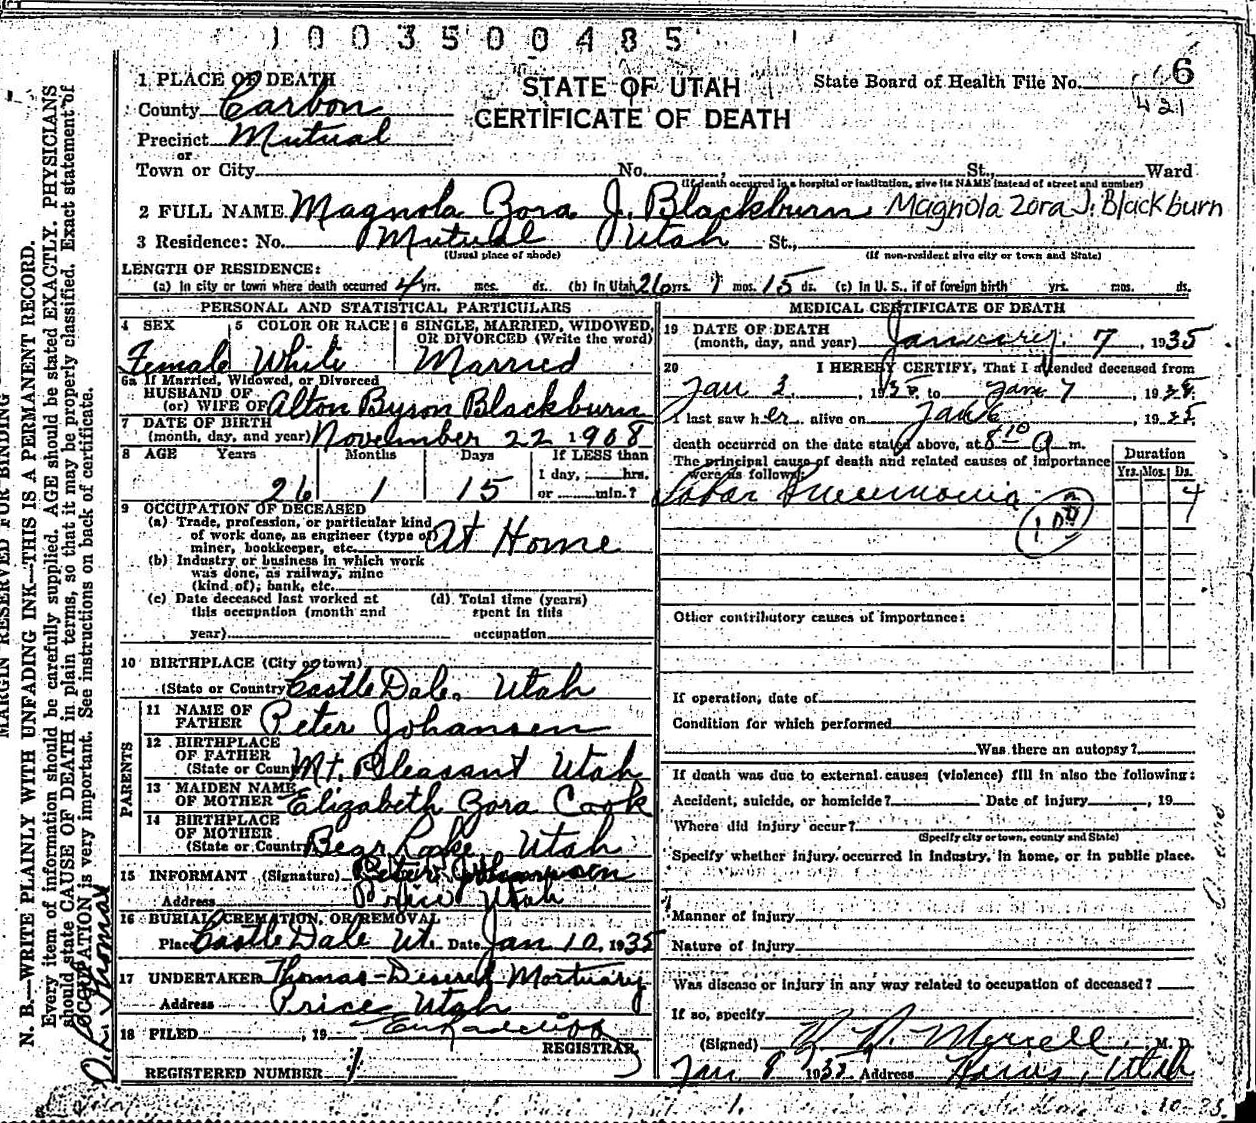 1003500485
1 PLACE OF DEATH
County Carbon
Precinct Mutual
or
Town or City No. St., Ward
(If death occurred in a hospital or institution, give its NAME instead of street and number)
STATE OF UTAH
CERTIFICATE OF DEATH
State Board of Health File No. 6
421
2 FULL NAME Magnola Zora J. Blackburn Magnola Zora J. Blackburn
3 Residence: No. Mutual Utah St.,
(Usual place of abode) (If non-resident give city or town and State)
LENGTH OF RESIDENCE:
(a) In city or town where death occurred 4 yrs. mos. ds. (b) In Utah 26 yrs. 1 mos. 15 ds. (c) In U. S., if of foreign birth yrs. mos. ds.
PERSONAL AND STATISTICAL PARTICULARS
4 SEX 5 COLOR OR RACE 6 SINGLE, MARRIED, WIDOWED, OR DIVORCED (Write the word)
Female White Married
6a If Married, Widowed, or Divorced
HUSBAND OF
(or) WIFE OF Alton Byson Blackburn
7 DATE OF BIRTH
(month, day, and year) November 22 1908
8 AGE Years Months Days If LESS than
1 day, hrs.
26 1 15 or min.?
9 OCCUPATION OF DECEASED
(a) Trade, profession, or particular kind
of work done, as engineer (type of
miner, bookkeeper, etc. At Home
(b) Industry or business in which work
was done, as railway, mine
(kind of), bank, etc.
(c) Date deceased last worked at (d) Total time (years)
this occupation (month and spent in this
year) occupation
10 BIRTHPLACE (City or town)
(State or Country Castle Dale, Utah
PARENTS
11 NAME OF
FATHER Peter Johansen
12 BIRTHPLACE
OF FATHER
(State or Country Mt. Pleasant Utah
13 MAIDEN NAME
OF MOTHER Elizabeth Zora Cook
14 BIRTHPLACE
OF MOTHER
(State or Country Bear Lake, Utah
15 INFORMANT (Signature) Peter Johansen
Address Price Utah
16 BURIAL, CREMATION, OR REMOVAL
Place Castle Dale Ut. Date Jan 10, 1935
17 UNDERTAKER Thomas-Deseret Mortuary
Address Price Utah
18 FILED , 19
REGISTRAR
REGISTERED NUMBER 1
MEDICAL CERTIFICATE OF DEATH
19 DATE OF DEATH
(month, day, and year) January 7, 1935
20 I HEREBY CERTIFY, That I attended deceased from
Jan 3, 1935 to Jan 7 1935
I last saw her alive on Jan 6 1935
death occurred on the date stated above, at 8 10 a m.
The principal cause of death and related causes of importance
were as follows: Duration
Yrs. Mos. Ds.
Lobar Pneumonia 4
Other contributory causes of importance:
If operation, date of
Condition for which performed
Was there an autopsy?
If death was due to external causes (violence) fill in also the following:
Accident, suicide, or homicide? Date of injury , 19
Where did injury occur?
(Specify city or town, county and State)
Specify whether injury occurred in industry, in home, or in public place.
Manner of Injury
Nature of Injury
Was disease or injury in any way related to occupation of deceased?
If so, specify
(Signed) Merrell, M. D.
Jan 8 1935 Address Hiawatha, Utah
MARGIN RESERVED FOR BINDING
N. B.—WRITE PLAINLY WITH UNFADING INK—THIS IS A PERMANENT RECORD.
Every item of information should be carefully supplied. AGE should be stated EXACTLY. PHYSICIANS
should state CAUSE OF DEATH in plain terms, so that it may be properly classified. Exact statement of
OCCUPATION is very important. See instructions on back of certificate.
Thomas